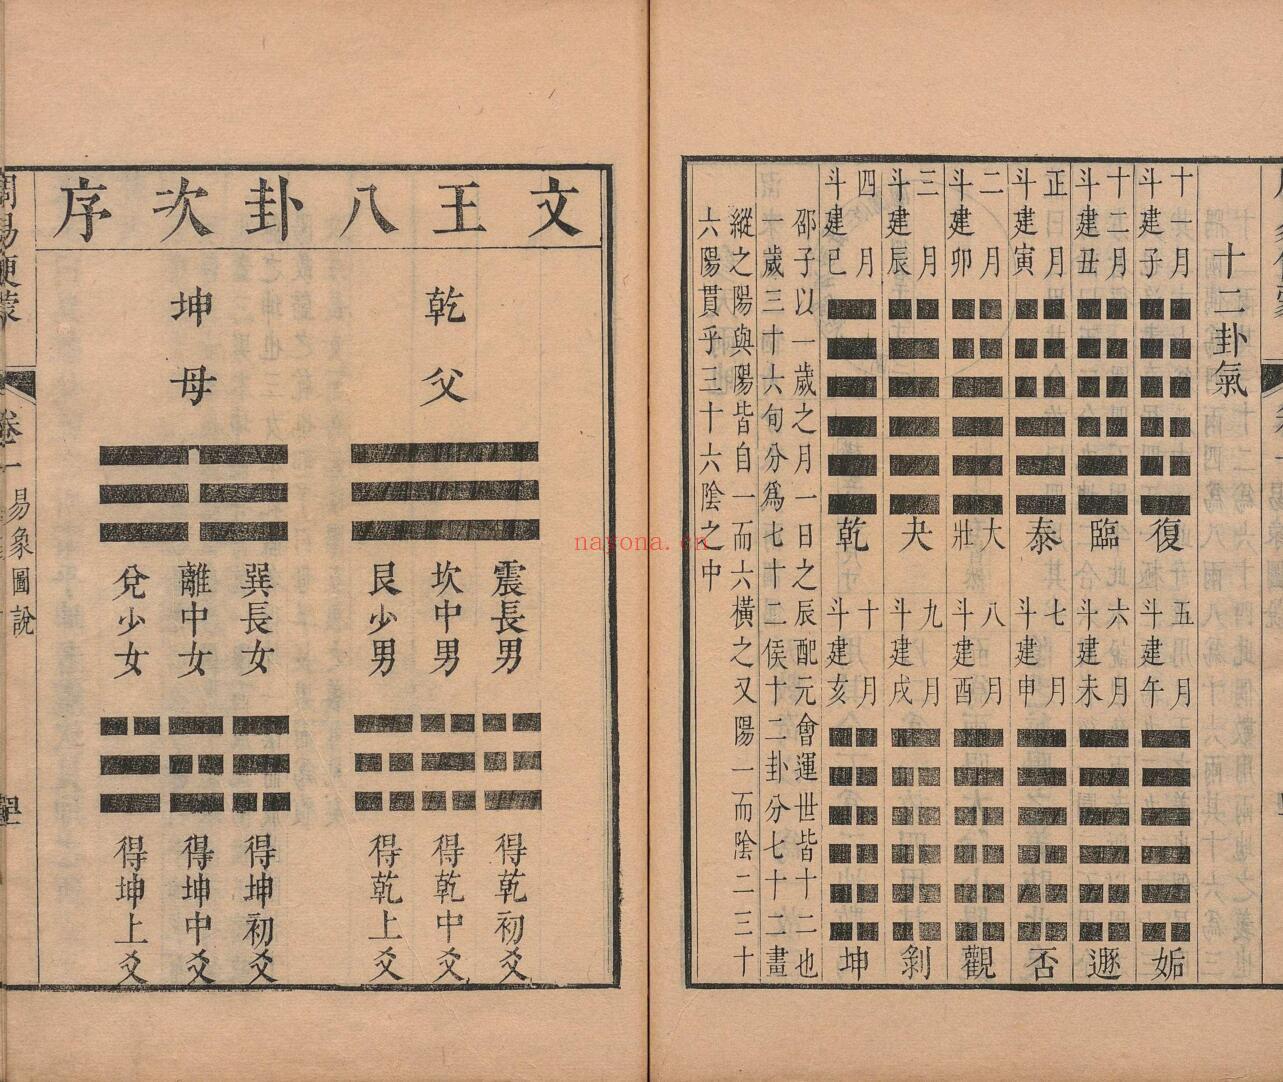 十二卦氣
十一月斗建子
復
十二月斗建丑
臨
正月斗建寅
泰
二月斗建卯
大壯
三月斗建辰
夬
四月斗建巳
乾
五月斗建午
姤
六月斗建未
遯
七月斗建申
否
八月斗建酉
觀
九月斗建戌
剝
十月斗建亥
坤
邵子以一歲之月一日之辰配元會運世皆十二也
一歲三十六旬分爲七十二侯十二卦分七十二畫
縱之陽與陽皆自一而六橫之又陽一而陰二三十
六陽貫乎三十六陰之中
文王八卦次序
乾父
坤母
震長男
坎中男
艮少男
巽長女
離中女
兌少女
得乾初爻
得乾中爻
得乾上爻
得坤初爻
得坤中爻
得坤上爻
卷一
易象圖說
nayona.cn